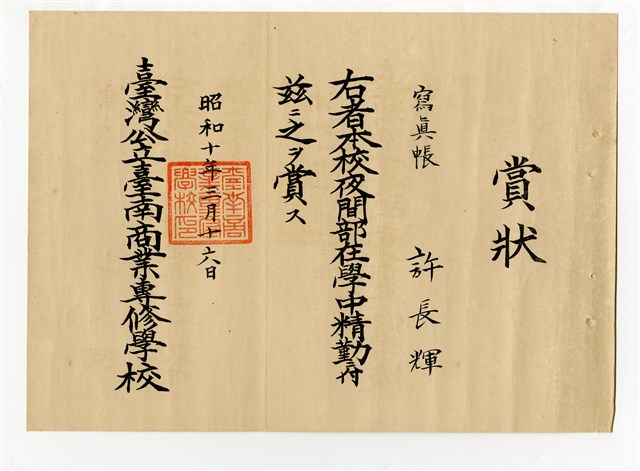 賞狀
寫眞帳 許長輝
右者本校夜間部在學中精勤付
茲ニ之ヲ賞ス
昭和十年三月十六日
臺灣公立臺南商業專修學校